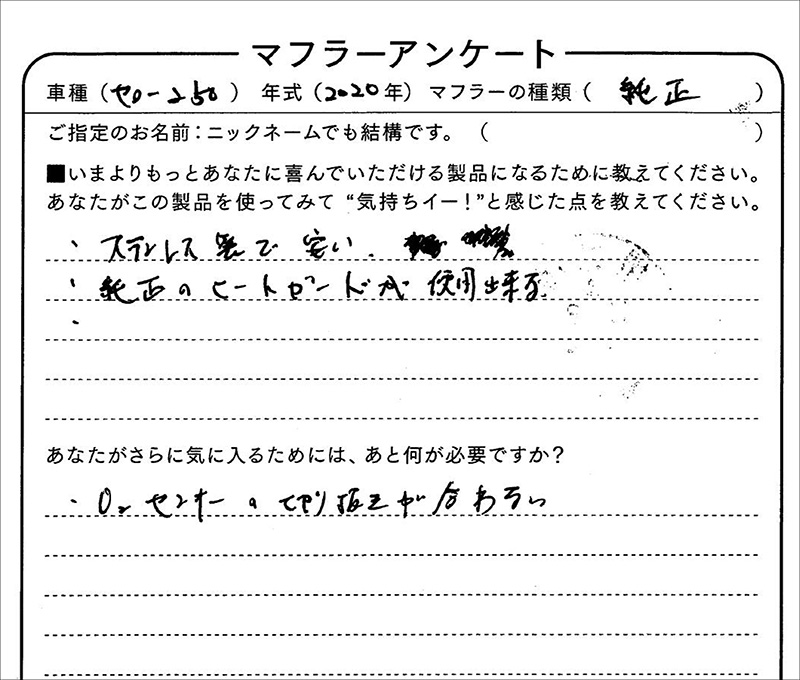 マフラーアンケート
車種（セロー250） 年式（2020年）マフラーの種類（ 純正 ）
ご指定のお名前：ニックネームでも結構です。（ ）
■いまよりもっとあなたに喜んでいただける製品になるために教えてください。
あなたがこの製品を使ってみて“気持ちイー！”と感じた点を教えてください。
・ステンレス製で安い.
・純正のヒートガードが使用出来る
・
あなたがさらに気に入るためには、あと何が必要ですか？
・O₂センサーの切り抜きが合わない